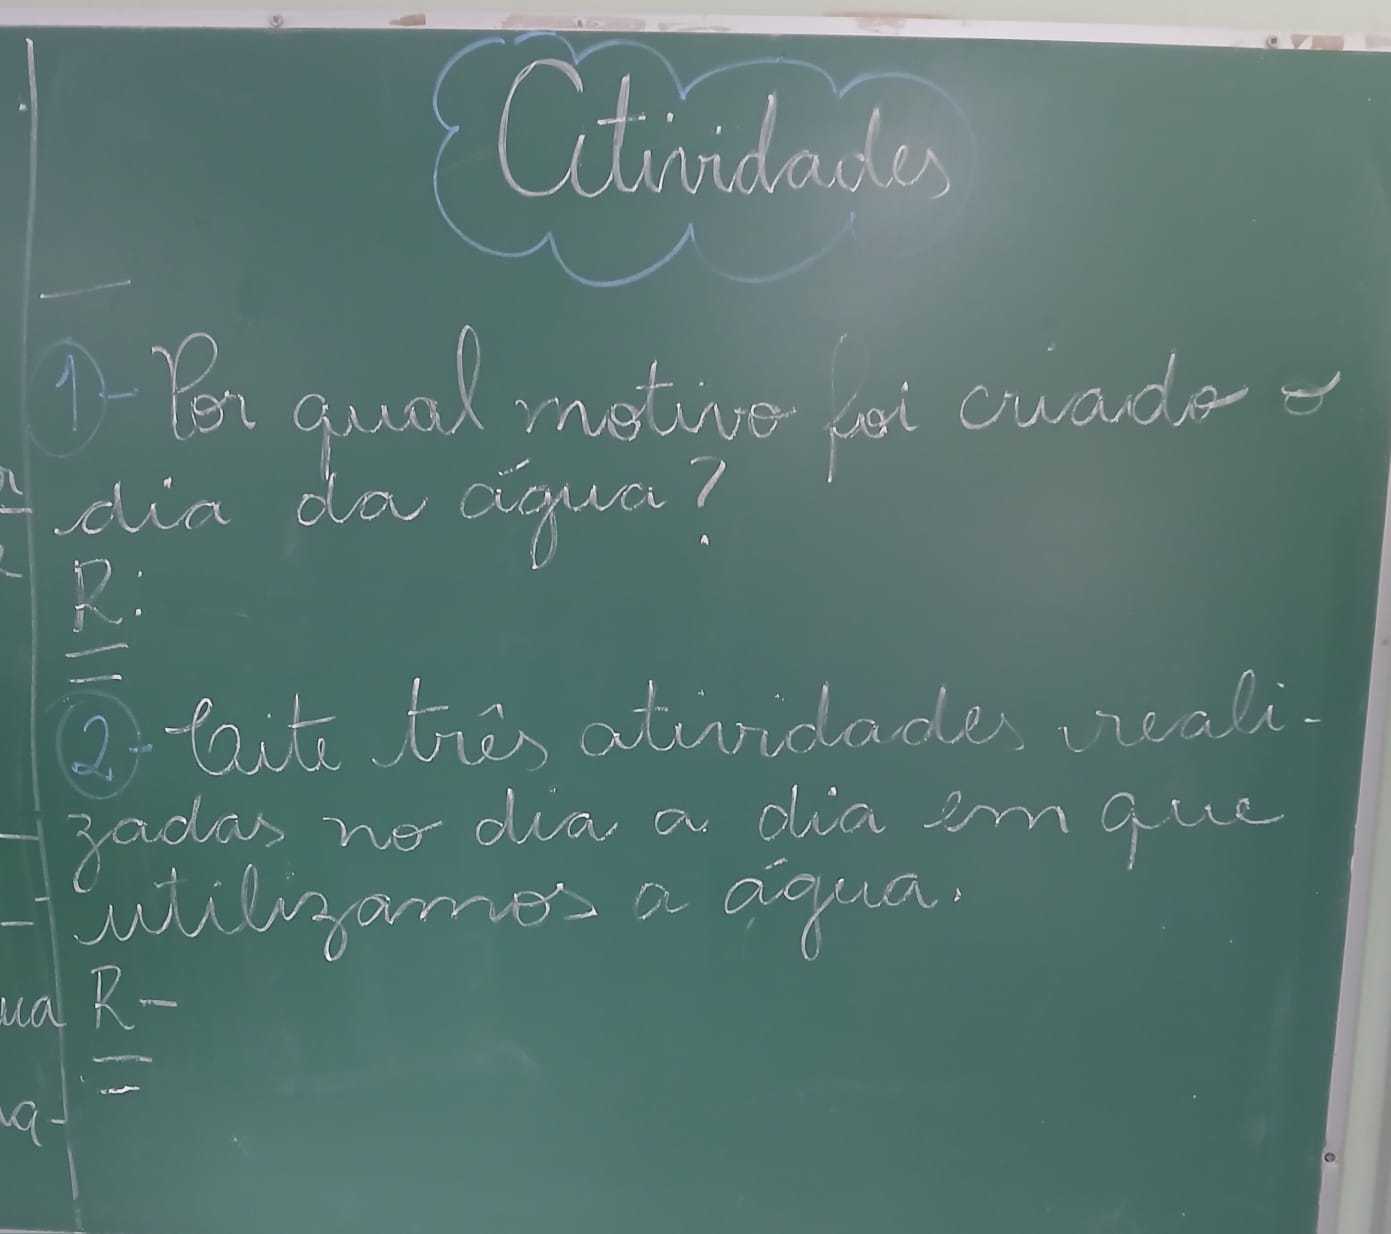 Atividades
1- Por qual motivo foi criado o
dia da água?
R:
2- Cite três atividades reali-
zadas no dia a dia em que
utilizamos a água.
R-